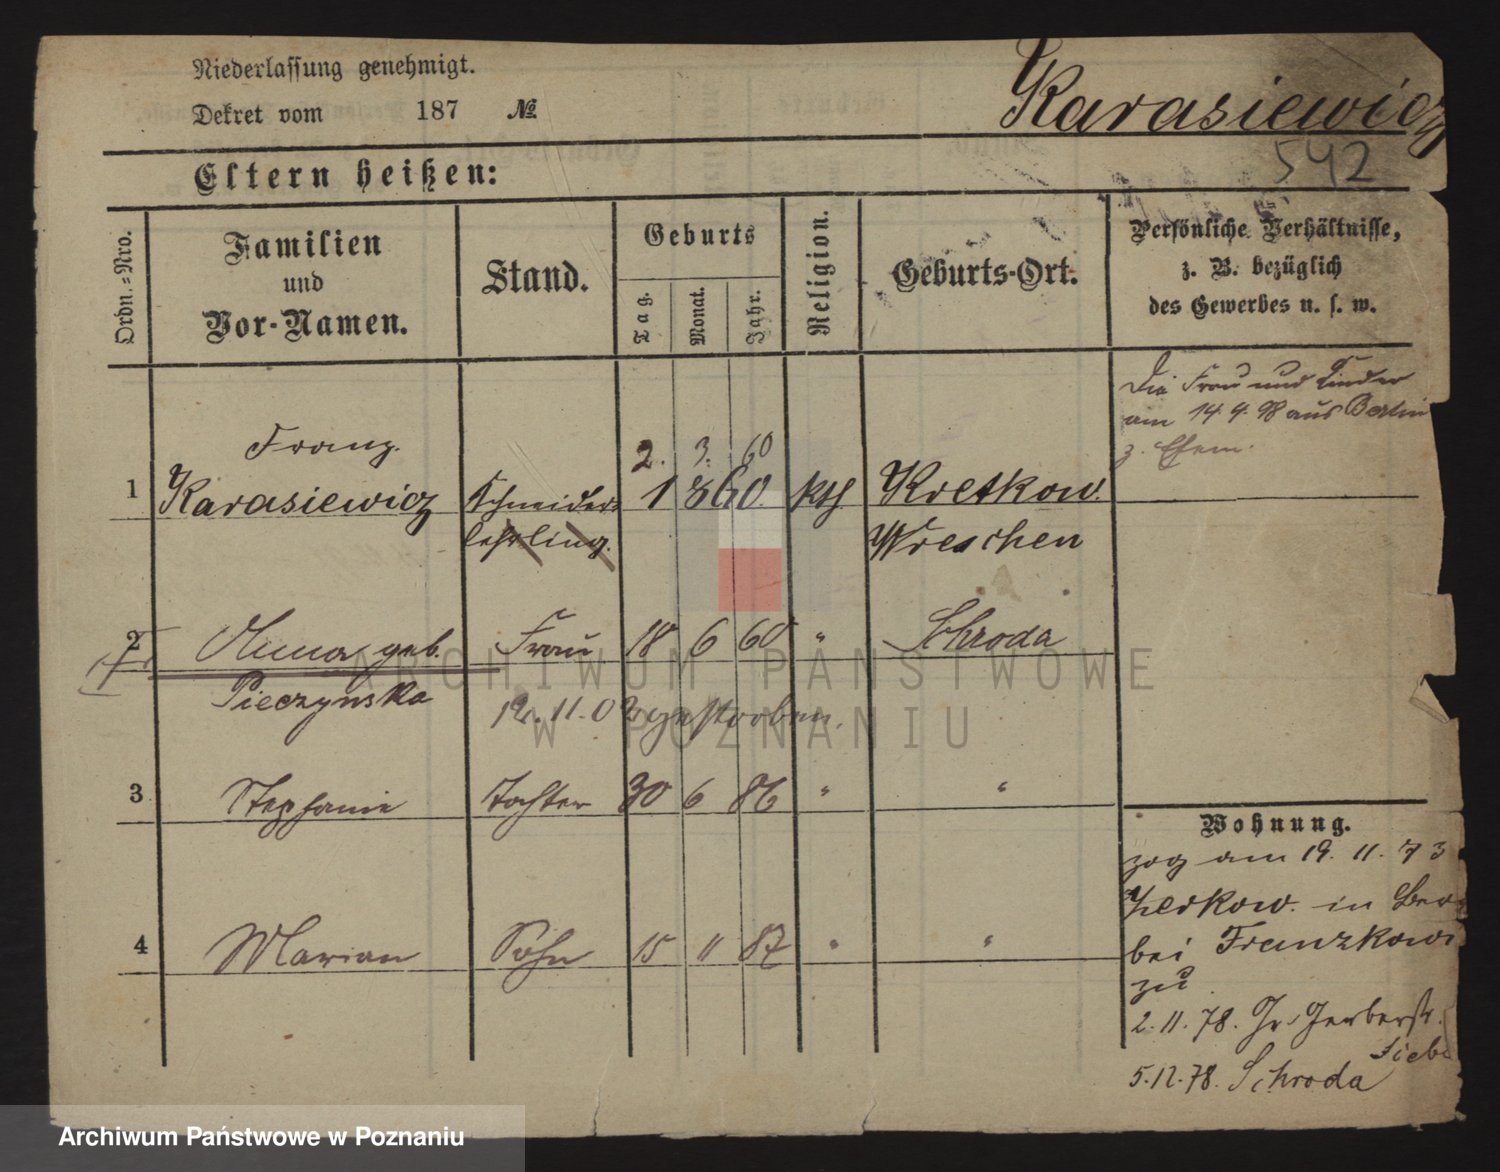 Niederlassung genehmigt.
Dekret vom 187 №
Karasiewicz
542
Eltern heißen:
Ordn.=Nro.
Familien
und
Vor-Namen.
Stand.
Geburts
Tag.
Monat.
Jahr.
Religion.
Geburts-Ort.
Persönliche Verhältnisse,
z. B. bezüglich
des Gewerbes u. s. w.
Die Frau und Kinder
am 14.9.98 aus Berlin
z. Ehem.
Franz. 2. 3. 60
1 Karasiewicz Schneider 1860. kth. Kretkow.
lehrling. Wreschen
2 Anna geb. Frau 18 6 60 " Schroda
Pieczynska 12.11.02 gestorben.
3 Stephanie Tochter 30 6 86 " "
4 Marian Sohn 15 11 87 " "
Wohnung.
zog am 19. 11. 73
Zerkow. in
bei Franzkowi
zu
2.11.78. Gr. Gerberstr.
5.12.78. Schroda
ARCHIWUM PAŃSTWOWE
W POZNANIU
Archiwum Państwowe w Poznaniu